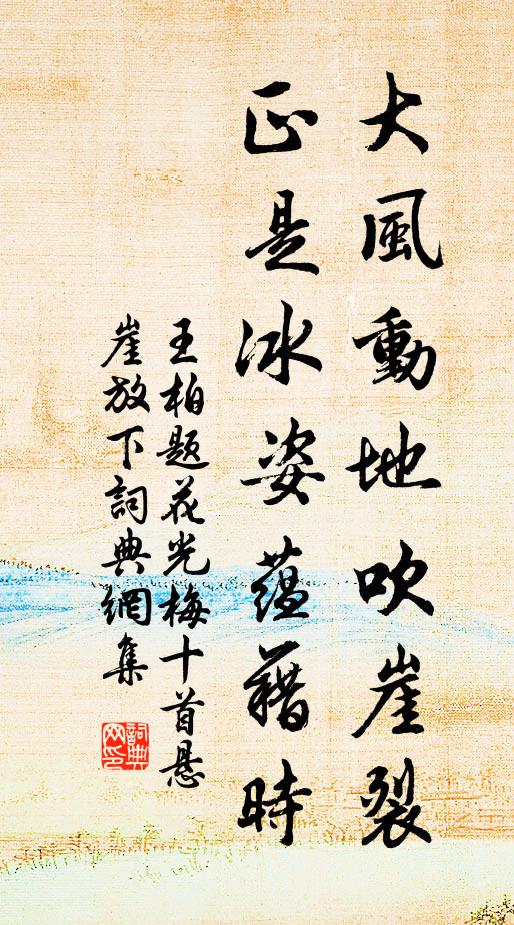 大風動地吹崖裂
正是冰姿蘊藉時
王柏題花光梅十首懸
崖放下詞典網集
詞典
网印